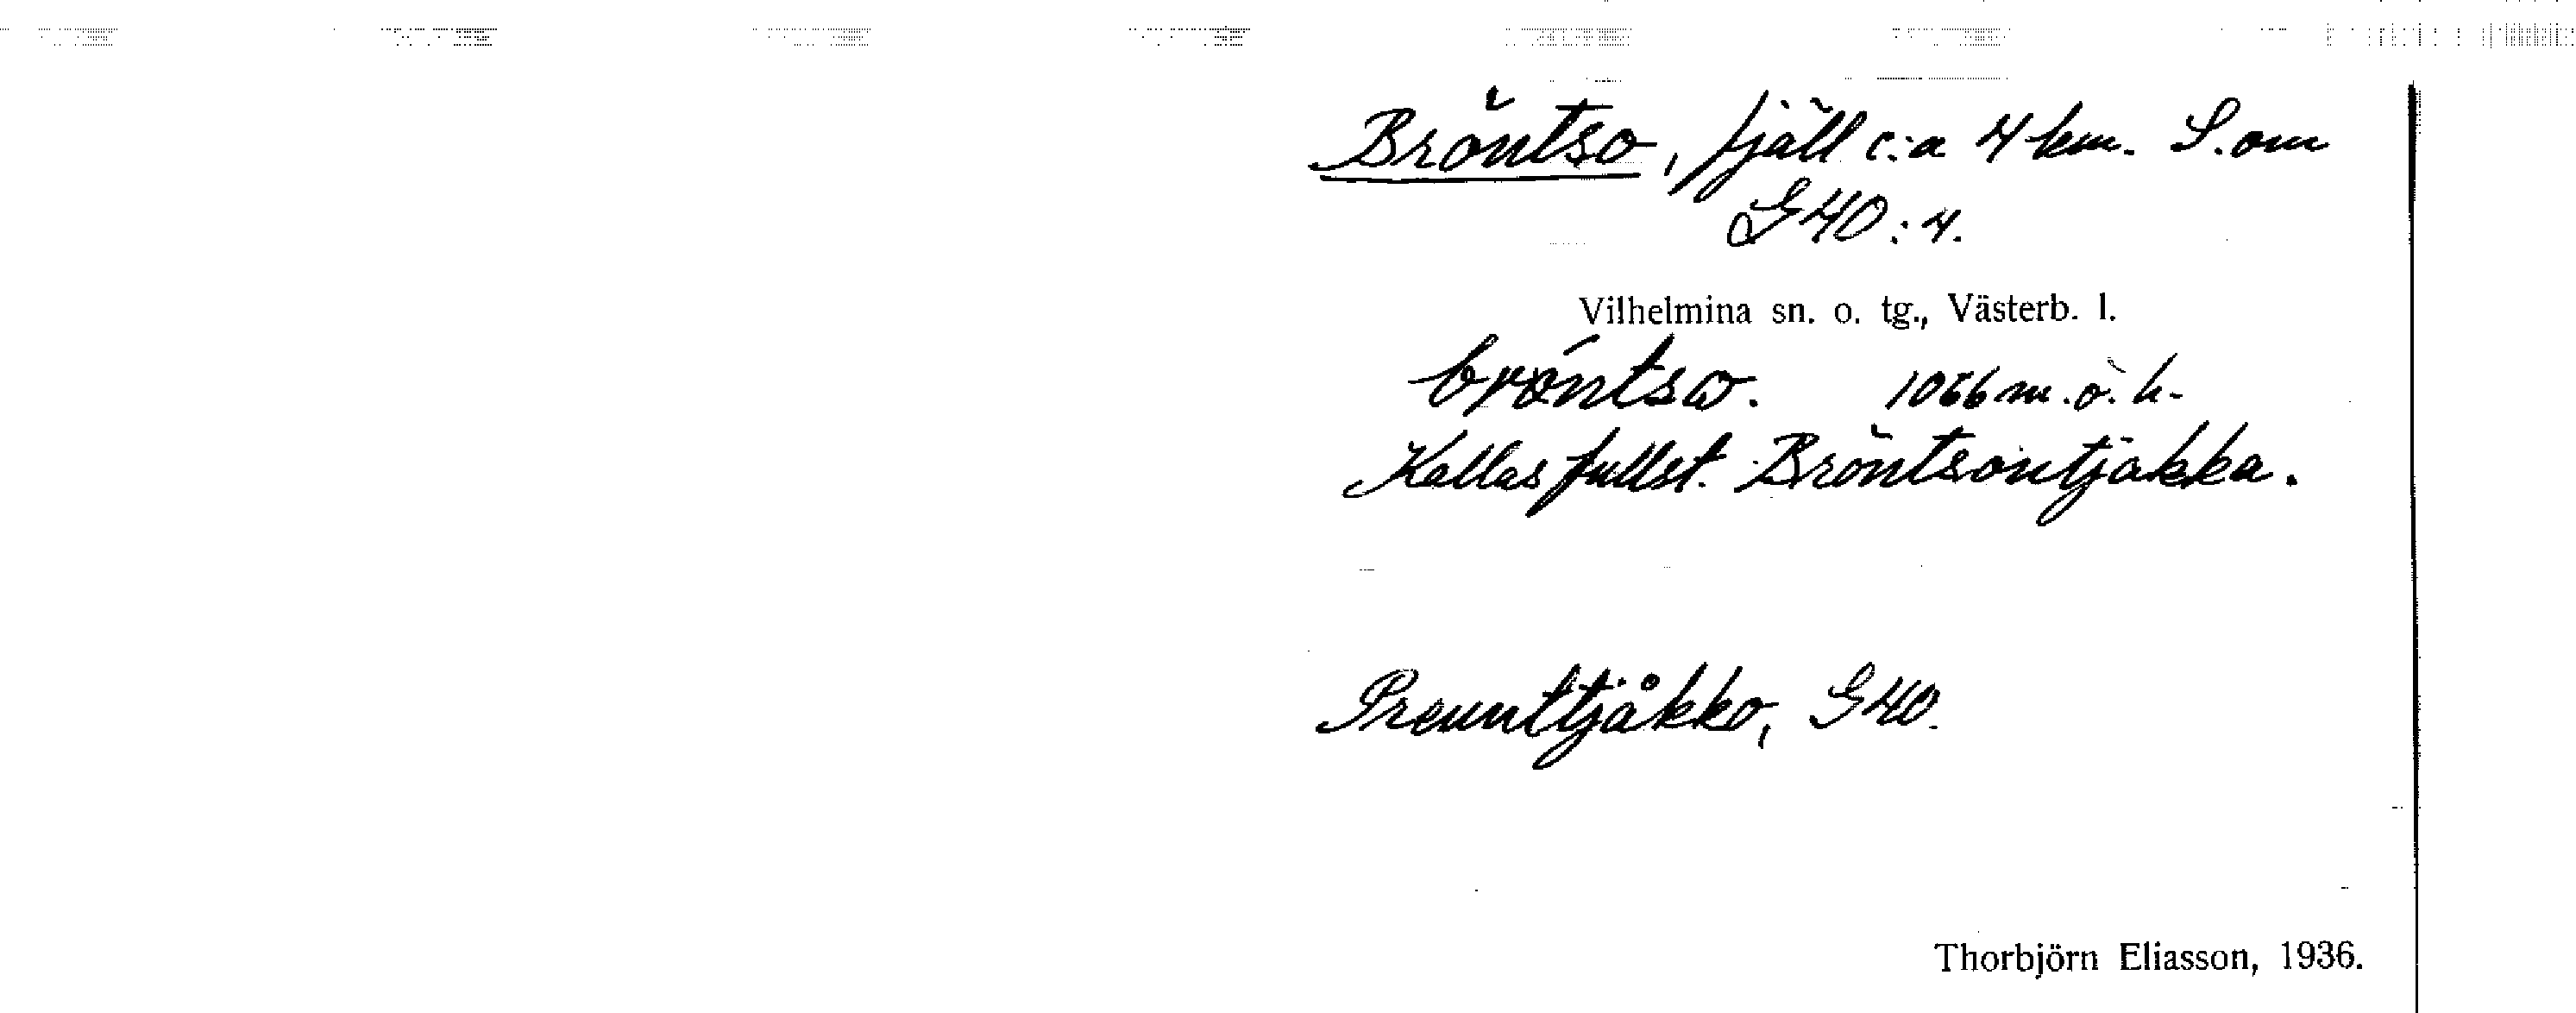 Bröntso, fjäll c:a 4 km. S. om
G40:4.
Vilhelmina sn. o. tg., Västerb. l.
1066 m. ö. h.
Kallas fullst. Bröntsontjåkka.
Preunttjåkko, G40.
Thorbjörn Eliasson, 1936.